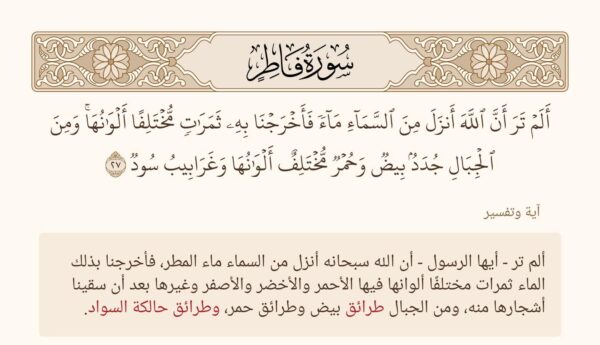 سُورَةُ فَاطِرٍ
أَلَمْ تَرَ أَنَّ ٱللَّهَ أَنزَلَ مِنَ ٱلسَّمَآءِ مَآءٗ فَأَخۡرَجۡنَا بِهِۦ ثَمَرَٰتٖ مُّخۡتَلِفًا أَلۡوَٰنُهَاۚ وَمِنَ
ٱلۡجِبَالِ جُدَدُۢ بِيضٞ وَحُمۡرٞ مُّخۡتَلِفٌ أَلۡوَٰنُهَا وَغَرَابِيبُ سُودٞ ٢٧
آية وتفسير
ألم تر - أيها الرسول - أن الله سبحانه أنزل من السماء ماء المطر، فأخرجنا بذلك
الماء ثمرات مختلفًا ألوانها فيها الأحمر والأخضر والأصفر وغيرها بعد أن سقينا
أشجارها منه، ومن الجبال طرائق بيض وطرائق حمر، وطرائق حالكة السواد.